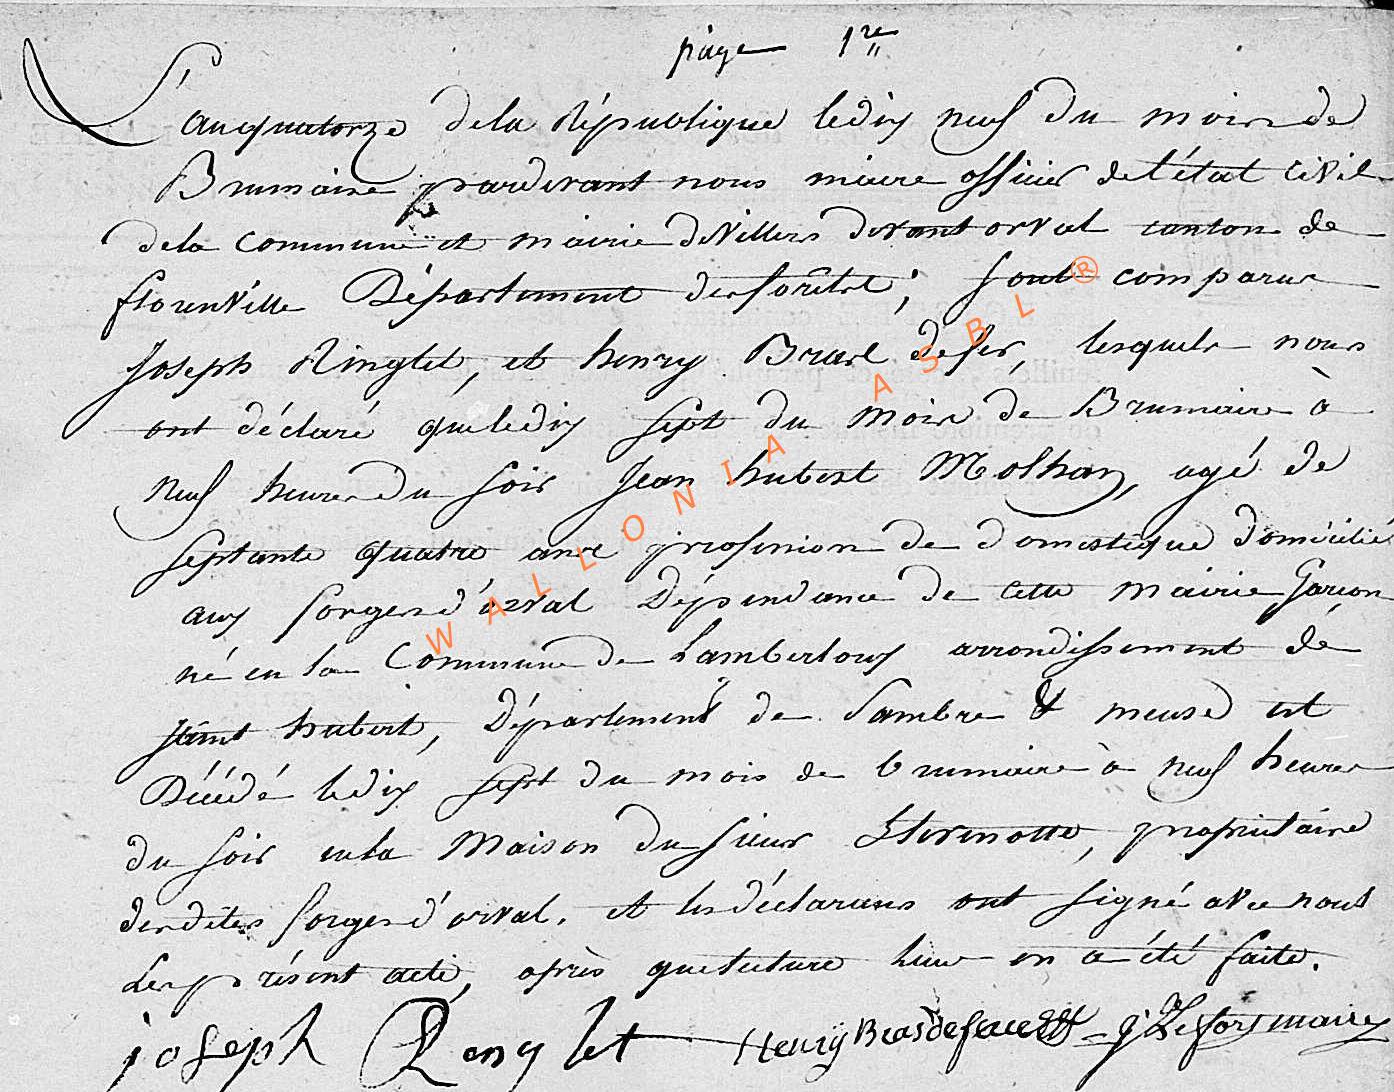 page 1re
L'an quatorze de la République le dix neuf du mois de
Brumaire pardevant nous maire officier de l'état civil
de la commune et mairie de Villers devant orval canton de
florenville Département des forêts ; sont comparus
Joseph Ringlet, et henry Bras defer, lesquels nous
ont déclaré que le dix sept du mois de Brumaire à
neuf heures du soir Jean hubert Molhan, agé de
septante quatre ans profession de domestique domicilié
aux forges d'orval Dépendance de cette mairie Garçon
né en la Commune de Lamberloux arrondissement de
saint hubert, Département de Sambre & meuse est
Décédé le dix sept du mois de brumaire à neuf heures
du soir en la Maison du sieur propriétaire
des dites forges d'orval. et les déclarans ont signé avec nous
Le présent acte, après que lecture leur en a été faite.
joseph Renglet Henry Brasdefer maire
WALLONIA ASBL ®